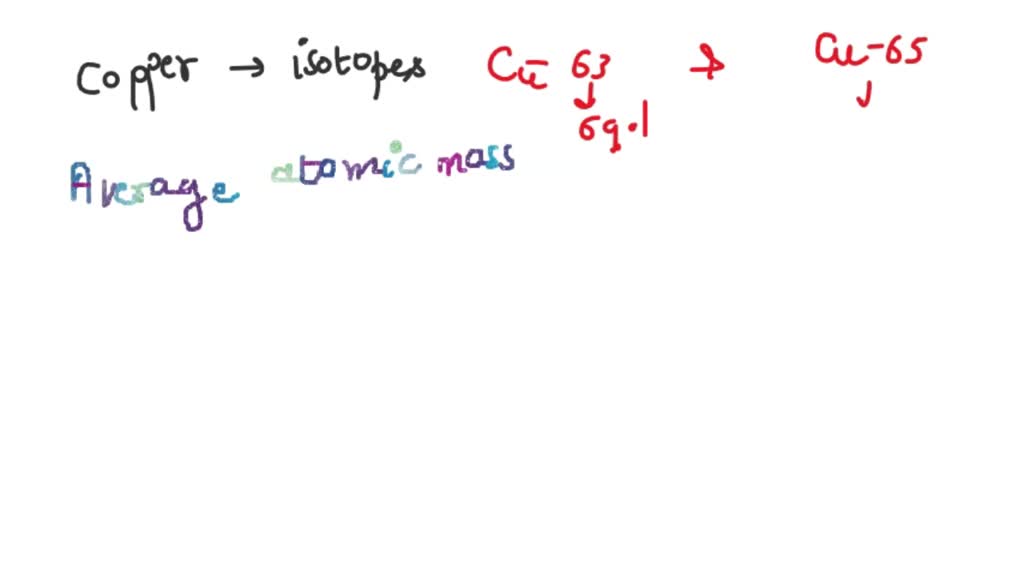 Copper → isotopes Cu- 63 → Cu-65
↓ ↓
69.1
Average atomic mass